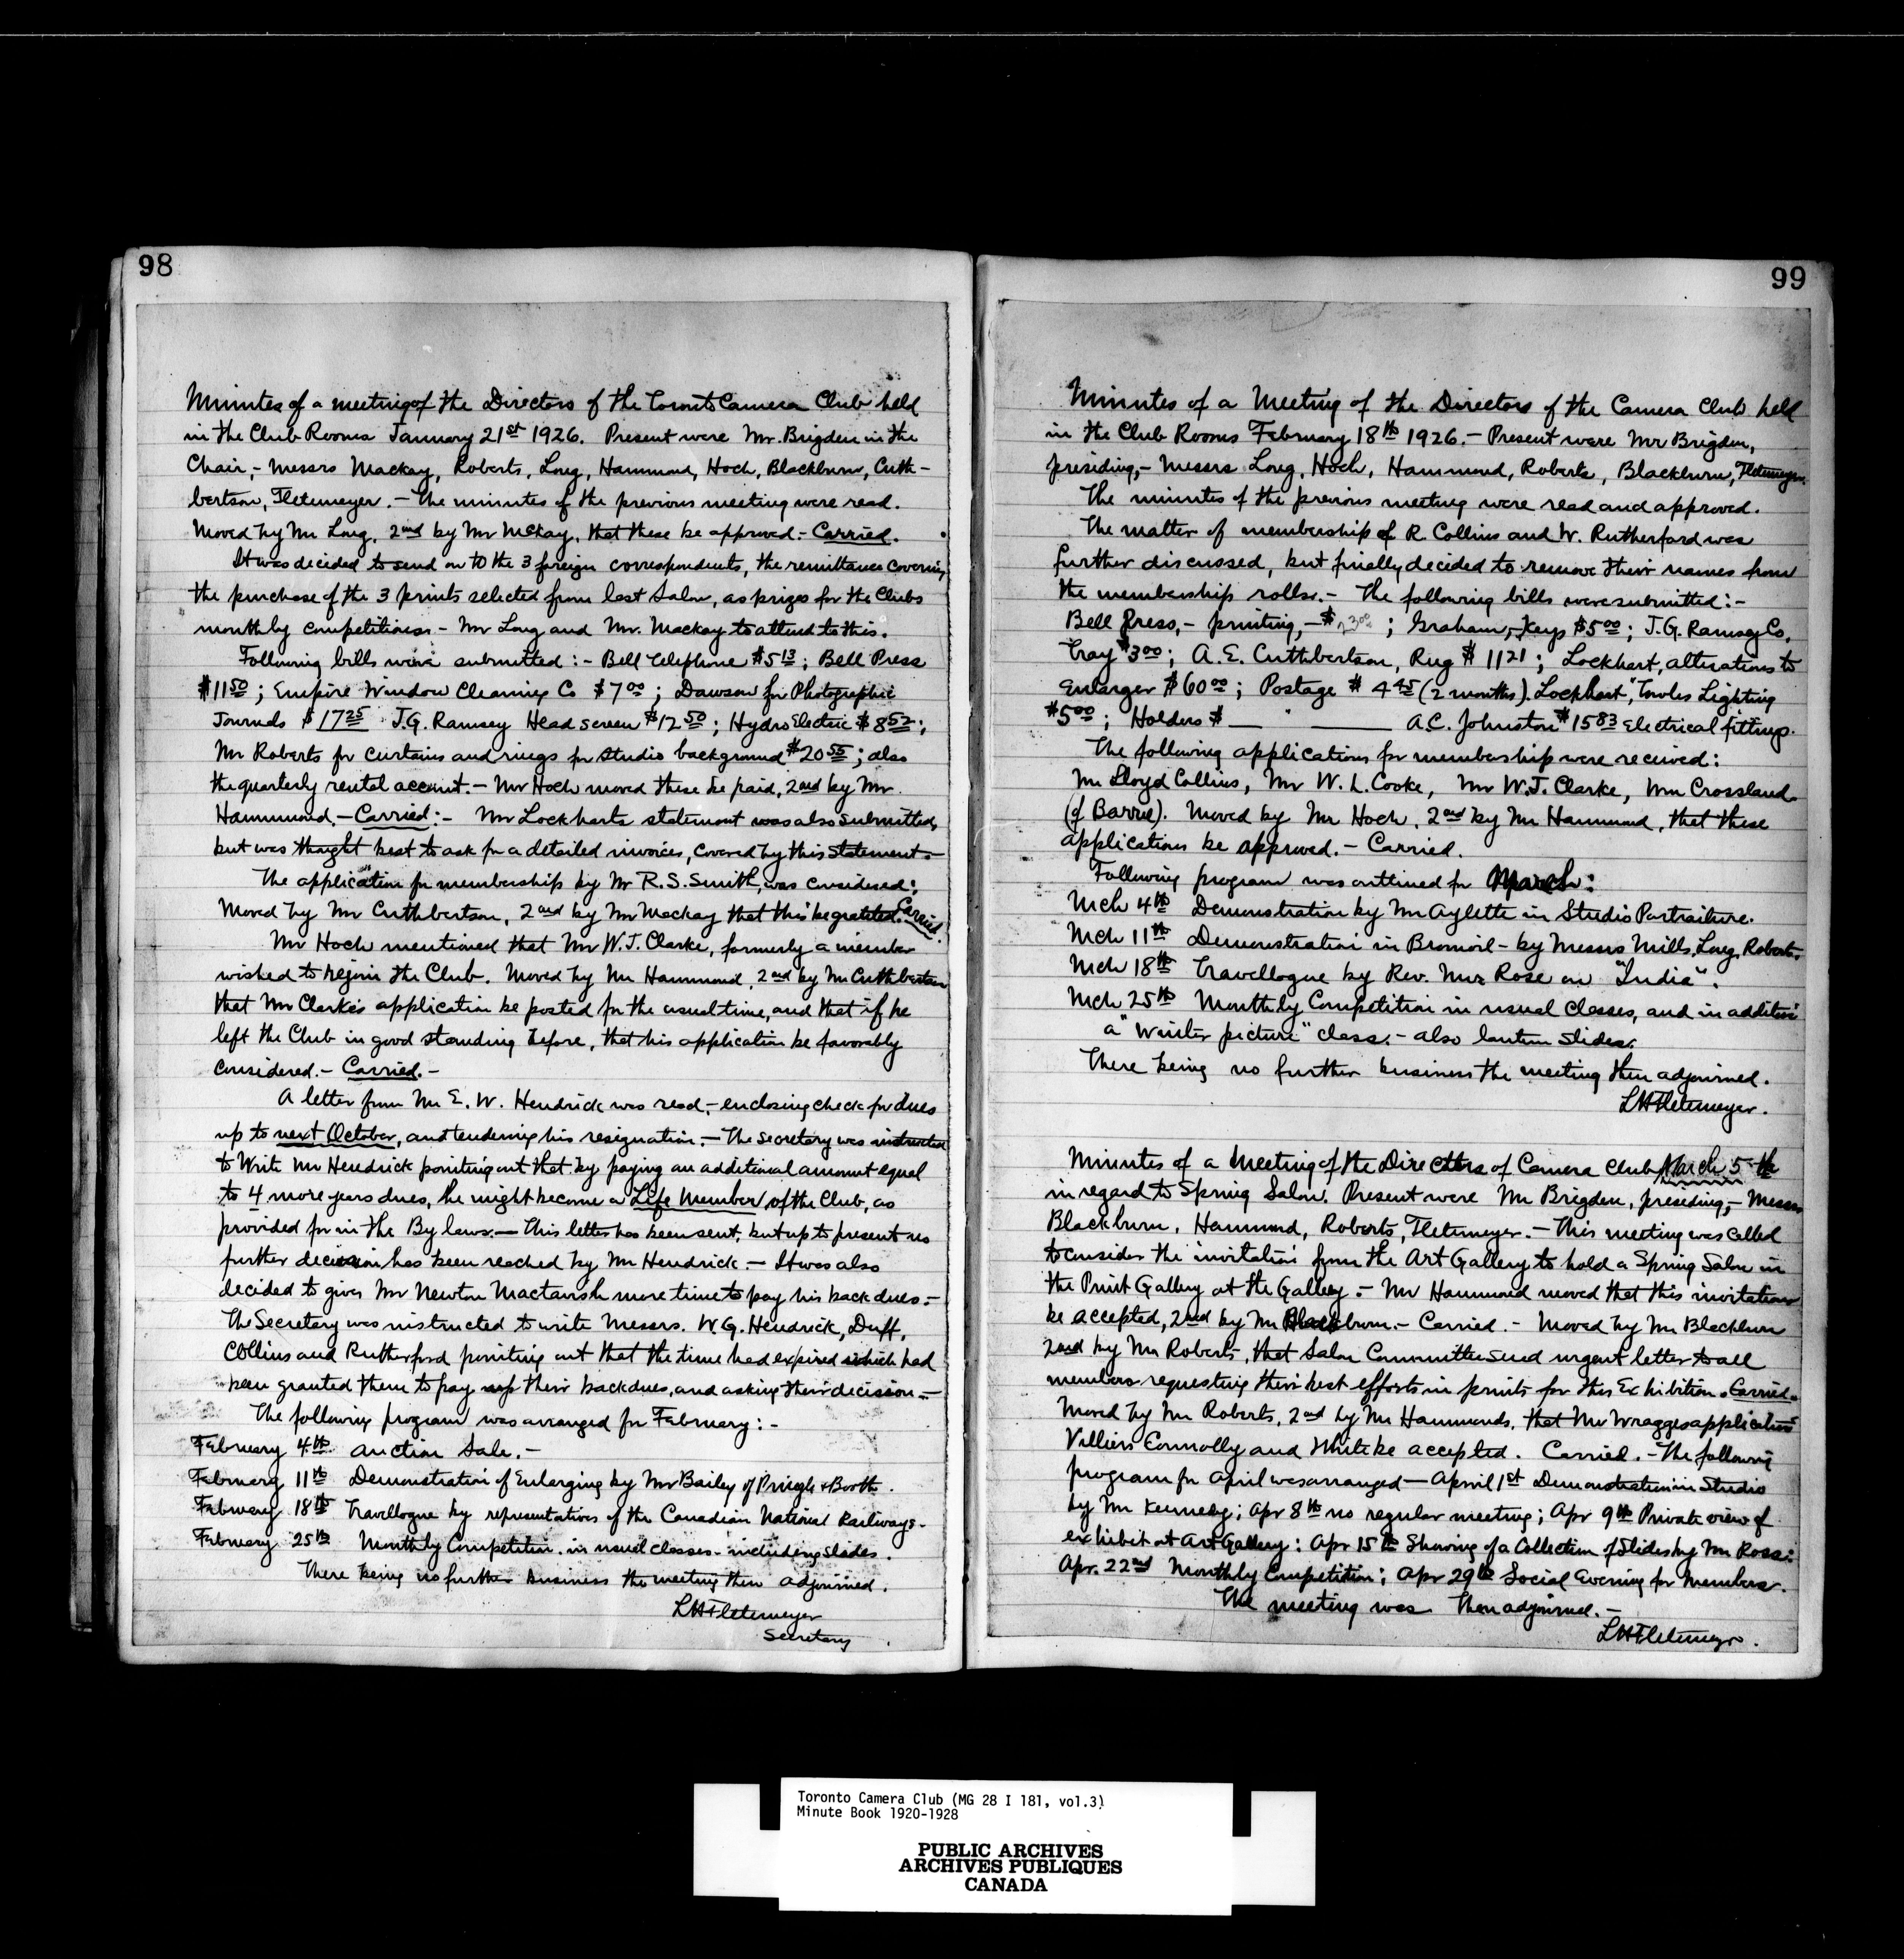 98
Minutes of a meeting of the Directors of the Toronto Camera Club held
in the Club Rooms January 21st 1926. Present were Mr. Brigden in the
Chair,- Messrs Mackay, Roberts, Long, Hammond, Hoch, Blackburn, Cuth-
bertson, Fletemeyer. - The minutes of the previous meeting were read.
Moved by Mr Long, 2nd by Mr McKay, that these be approved.- Carried.
It was decided to send on to the 3 foreign correspondents, the remittance covering
the purchase of the 3 prints selected from last Salon, as prizes for the Clubs
monthly competitions - Mr Long and Mr. Mackay to attend to this.
Following bills were submitted :- Bell Telephone $5 13; Bell Press
$11 50; Empire Window Cleaning Co $7 00; Dawson for Photographic
Journals $17 25 J.G. Ramsey Head screen $12 50; Hydro Electric $8 52;
Mr Roberts for curtains and rings for studio background $20 55; also
the quarterly rental account. - Mr Hoch moved these be paid, 2nd by Mr.
Hammond. - Carried :- Mr Lockharts statement was also submitted,
but was thought best to ask for a detailed invoices, covered by this statement -
The application for membership by Mr R.S. Smith, was considered:
Moved by Mr Cuthbertson, 2nd by Mr Mackay that this be granted. Carried.
Mr Hoch mentioned that Mr W.J. Clarke, formerly a member
wished to rejoin the Club. Moved by Mr Hammond, 2nd by Mr Cuthbertson
that Mr Clarke's application be posted for the usual time, and that if he
left the Club in good standing before, that his application be favorably
considered. - Carried. -
A letter from Mr E. W. Hendrick was read,- enclosing check for dues
up to next October, and tendering his resignation. - The Secretary was instructed
to write Mr Hendrick pointing out that by paying an additional amount equal
to 4 more years dues, he might become a Life Member of the Club, as
provided for in the By laws. - This letter has been sent, but up to present no
further decision has been reached by Mr Hendrick. - It was also
decided to give Mr Newton Mactavish more time to pay his back dues. -
The Secretary was instructed to write Messrs. W.G. Hendrick, Duff,
Collins and Rutherford pointing out that the time had expired which had
been granted them to pay up their back dues, and asking their decision. -
The following program was arranged for February :-
February 4th Auction Sale. -
February 11th Demonstration of Enlarging by Mr Bailey of Pringle & Booth.
February 18th Travellogue by representatives of the Canadian National Railways.
February 25th Monthly Competition in usual classes - including slides.
There being no further business the meeting then adjourned.
LH Fletemeyer
Secretary
99
Minutes of a Meeting of the Directors of the Camera Club held
in the Club Rooms February 18th 1926. - Present were Mr Brigden,
presiding,- Messrs Long, Hoch, Hammond, Roberts, Blackburn, Fletemeyer.
The minutes of the previous meeting were read and approved.
The matter of membership of R. Collins and W. Rutherford was
further discussed, but finally decided to remove their names from
the membership rolls. - The following bills were submitted :-
Bell Press,- printing,- $ ; Graham,- Keys $5 00; J.G. Ramsey Co,
Tray $3 00; A.E. Cuthbertson, Rug $11 21; Lockhart, alterations to
Enlarger $60 00; Postage $4 45 (2 months). Lockhart, Lighting
$5 00; Holders $ A.C. Johnston $15 83 Electrical fittings.
The following applications for membership were received:
Mr Lloyd Collins, Mr W.L. Cooke, Mr W.J. Clarke, Wm Crossland
(of Barrie). Moved by Mr Hoch, 2nd by Mr Hammond, that these
applications be approved. - Carried.
Following program was outlined for March:
Mch 4th Demonstration by Mr Aylette in Studio Portraiture.
Mch 11th Demonstration in Bromoil - by Messrs Mills, Long, Roberts.
Mch 18th Travellogue by Rev. Rose on "India".
Mch 25th Monthly Competition in usual Classes, and in addition
a "Winter picture" class. - also lantern slides.
There being no further business the meeting then adjourned.
LH Fletemeyer.
Minutes of a Meeting of the Directors of Camera Club March 5th
in regard to Spring Salon. Present were Mr Brigden, presiding,- Messrs
Blackburn, Hammond, Roberts, Fletemeyer. - This meeting was called
to consider the invitation from the Art Gallery to hold a Spring Salon in
the Print Gallery at the Gallery. - Mr Hammond moved that this invitation
be accepted, 2nd by Mr Blackburn. - Carried. - Moved by Mr Blackburn
2nd by Mr Roberts, that Salon Committee send urgent letter to all
members requesting their best efforts in prints for this Exhibition. Carried.
Moved by Mr Roberts, 2nd by Mr Hammond, that Mr Wragges application
Villiers Connolly and White be accepted. Carried. - The following
program for April was arranged - April 1st Demonstration in Studio
by Mr Kennedy; Apr 8th no regular meeting; Apr 9th Private view of
exhibit at Art Gallery: Apr 15th Showing of a Collection of Slides by Mr Rossi:
Apr. 22nd Monthly Competition; Apr 29th Social Evening for Members.
The meeting was then adjourned. -
LH Fletemeyer.
Toronto Camera Club (MG 28 I 181, vol.3)
Minute Book 1920-1928
PUBLIC ARCHIVES
ARCHIVES PUBLIQUES
CANADA